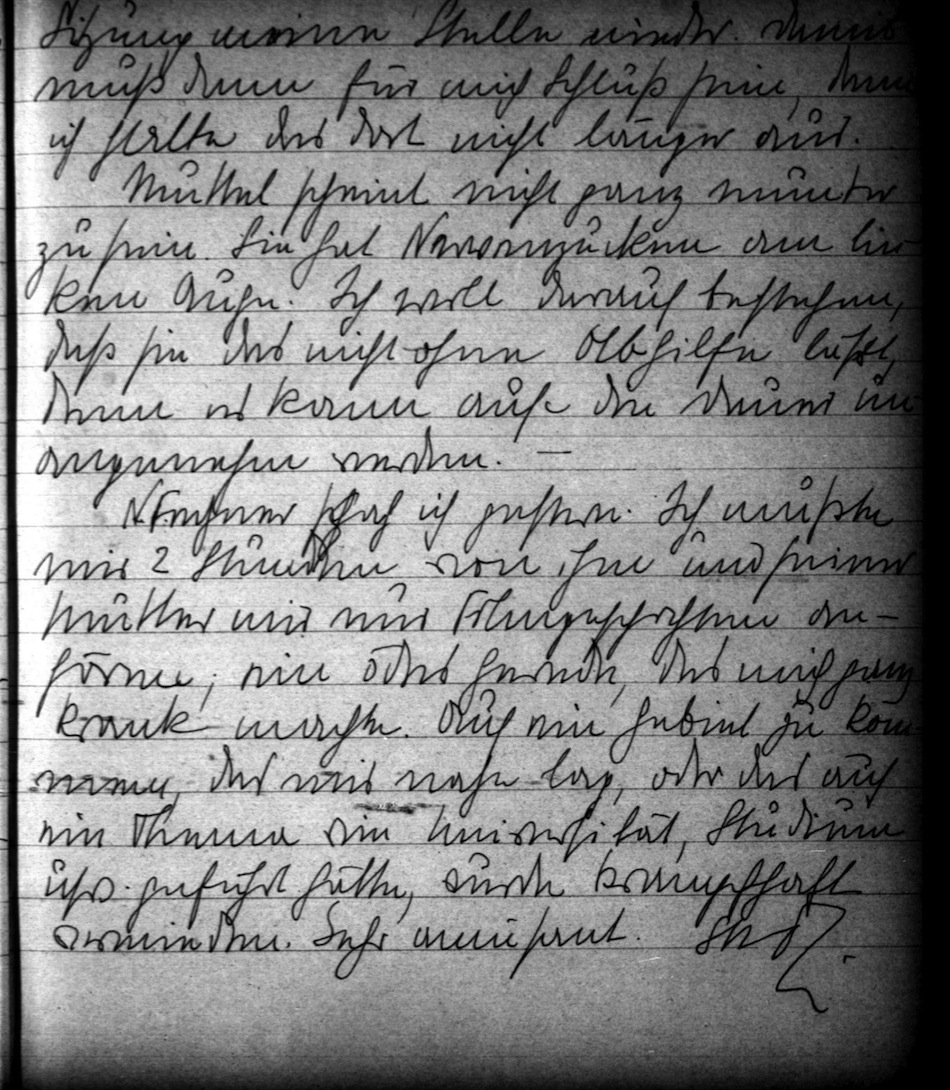 Sitzung meine Stelle nieder. Damit
muß dann für mich Schluß sein, denn
ich halte das dort nicht länger aus.
Muttel scheint nicht ganz munter
zu sein. Sie hat Nervenzucken am lin-
ken Auge. Ich will darauf bestehen,
daß sie das nicht ohne Abhilfe läßt,
denn es kann auf die Dauer un-
angenehm werden. —
sah ich gestern. Ich mußte
mir 2 Stunden von ihm und seiner
Mutter nur Filmgeschichten an-
hören; ein ödes Gerede, das mich ganz
krank machte. Auf ein Gebiet zu kom-
men, das mir nahe lag, oder das auf
ein Thema wie Universität, Studium
usw. geführt hätte, wurde krampfhaft
vermieden. Sehr amüsant.